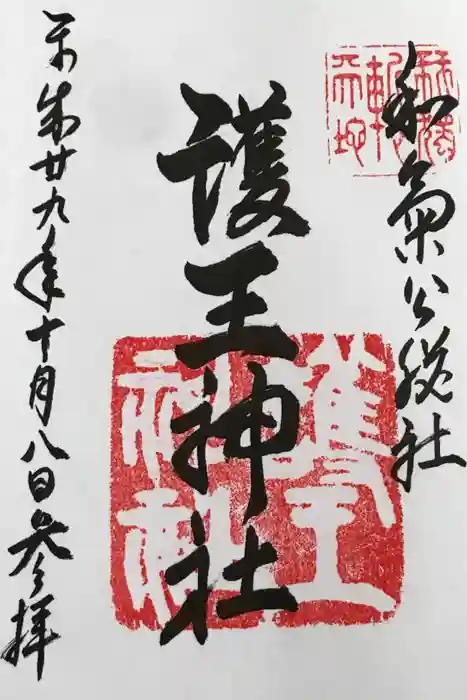 和氣公総社
護王神社
平成廿九年十月八日参拝
護王
神社